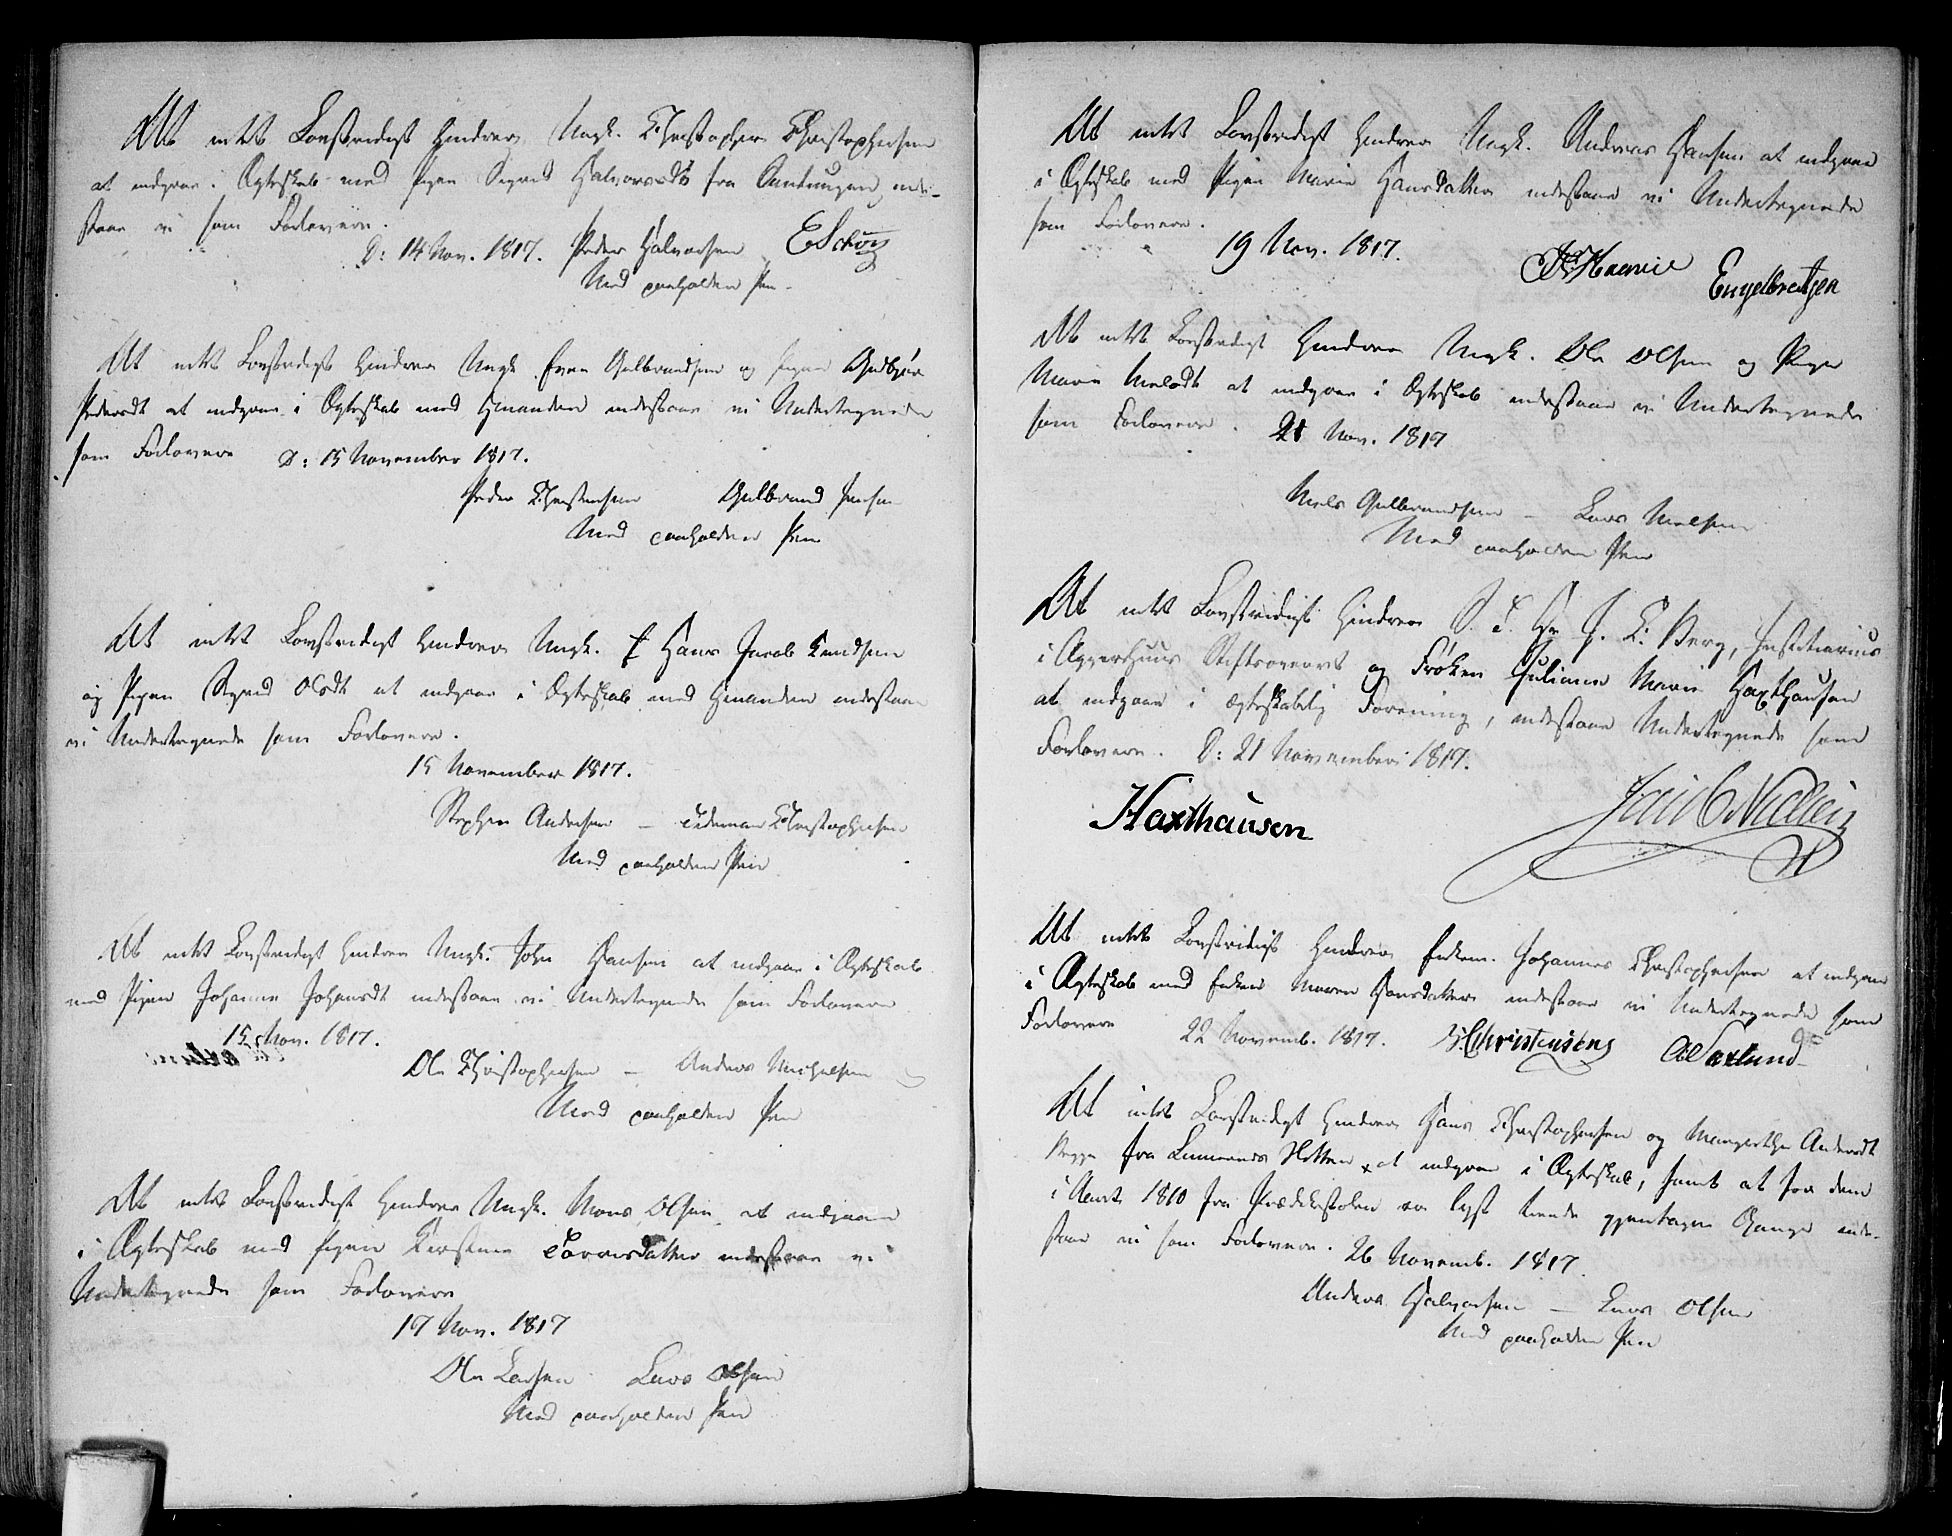 At intet Lovstridigt hindrer Ungk. Christopher Christophersen
at indgaae i Ægteskab med Pigen Sigrid Halvorsdt fra inde-
staae vi som Forlovere.
D: 14 Nov. 1817. Peder Halvorsen ESchøtz
Med paaholden Pen.
At intet Lovstridigt hindrer Ungk. Even Gulbrandsen og Pigen Gudbjør
Pedersdt at indgaae i Ægteskab med hinanden indestaae vi Undertegnede
som Forlovere D: 15 November 1817.
Peder Christensen Gulbrand Jensen
Med paaholden Pen
At intet Lovstridigt hindrer Ungk. Hans Jacob Knudsen
og Pigen Sigrid Olsdt at indgaae i Ægteskab med hinanden indestaae
vi Undertegnede som Forlovere.
15 November 1817.
Stephen Andersen – Christophersen
Med paaholden Pen
At intet Lovstridigt hindrer Ungk. John Hansen at indgaae i Ægteskab
med Pigen Johanne Johansdt indestaae vi Undertegnede som Forlovere
15 Nov. 1817.
Ole Christophersen – Anders Michelsen
Med paaholden Pen
At intet Lovstridigt hindrer Ungk. Mons Olsen at indgaae
i Ægteskab med Pigen Kirstine indestaae vi
Undertegnede som Forlovere
17 Nov. 1817
Ole Larsen Lars Olsen
Med paaholden Pen
At intet Lovstridigt hindrer Ungk. Andreas Hansen at indgaae
i Ægteskab med Pigen Marie Hansdatter indestaae vi Undertegnede
som Forlovere.
19 Nov. 1817.
Engelbretsen
At intet Lovstridigt hindrer Ungk. Ole Olsen og Pigen
Maren Nielsdt at indgaae i Ægteskab indestaae vi Undertegnede
som Forlovere. 21 Nov. 1817
Niels Gulbrandsen – Lars Nielsen
Med paaholden Pen
At intet Lovstridigt hindrer S. T. Hr J. C. Berg, Justitiarius
i Aggerhuus Stiftsoverret og Frøken Juliane Marie Haxthausen
at indgaae i ægteskabelig Forening, indestaae Undertegnede som
Forlovere. D: 21 November 1817.
Haxthausen Jacob Nielsen
At intet Lovstridigt hindrer Enkem. Johannes Christophersen at indgaae
i Ægteskab med Enken Maren Hansdatter indestaae vi Undertegnede som
Forlovere 22 Novemb. 1817. Christensen Saxlund
At intet Lovstridigt hindrer Hans Christophersen og Margrethe Andersdt
Begge fra at indgaae i Ægteskab, samt at for dem
i Aaret 1810 fra Prædikestolen er lyst trende gjentagne Gange inde-
staae vi som Forlovere. 26 Novemb. 1817.
Anders Halvorsen – Lars Olsen
Med paaholden Pen